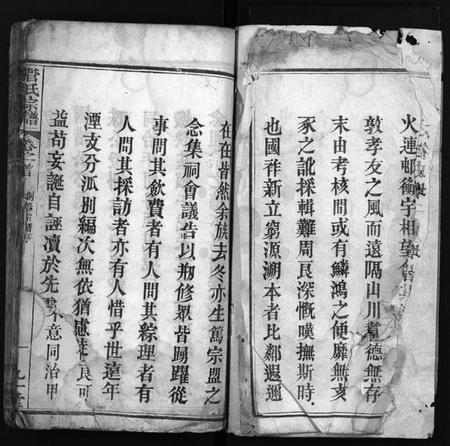 火連邨衡宇相望
敦孝友之風而遠隔山川耆德無存
末由考核間或有鱗鴻之便靡無亥
豕之訛採輯難周艮深慨嘆撫斯時
也國祚新立窮源溯本者比鄰遐邇
在在皆然余族去冬亦生篤宗盟之
念集祠會議告以刱修衆皆踴躍從
事問其飲費者有人問其綜理者有
人問其採訪者亦有人惜乎世遠年
湮支分派別編次無依猶慮 良可
益苟妄誕自誣瀆於先 意同治甲
管氏宗譜
卷之首